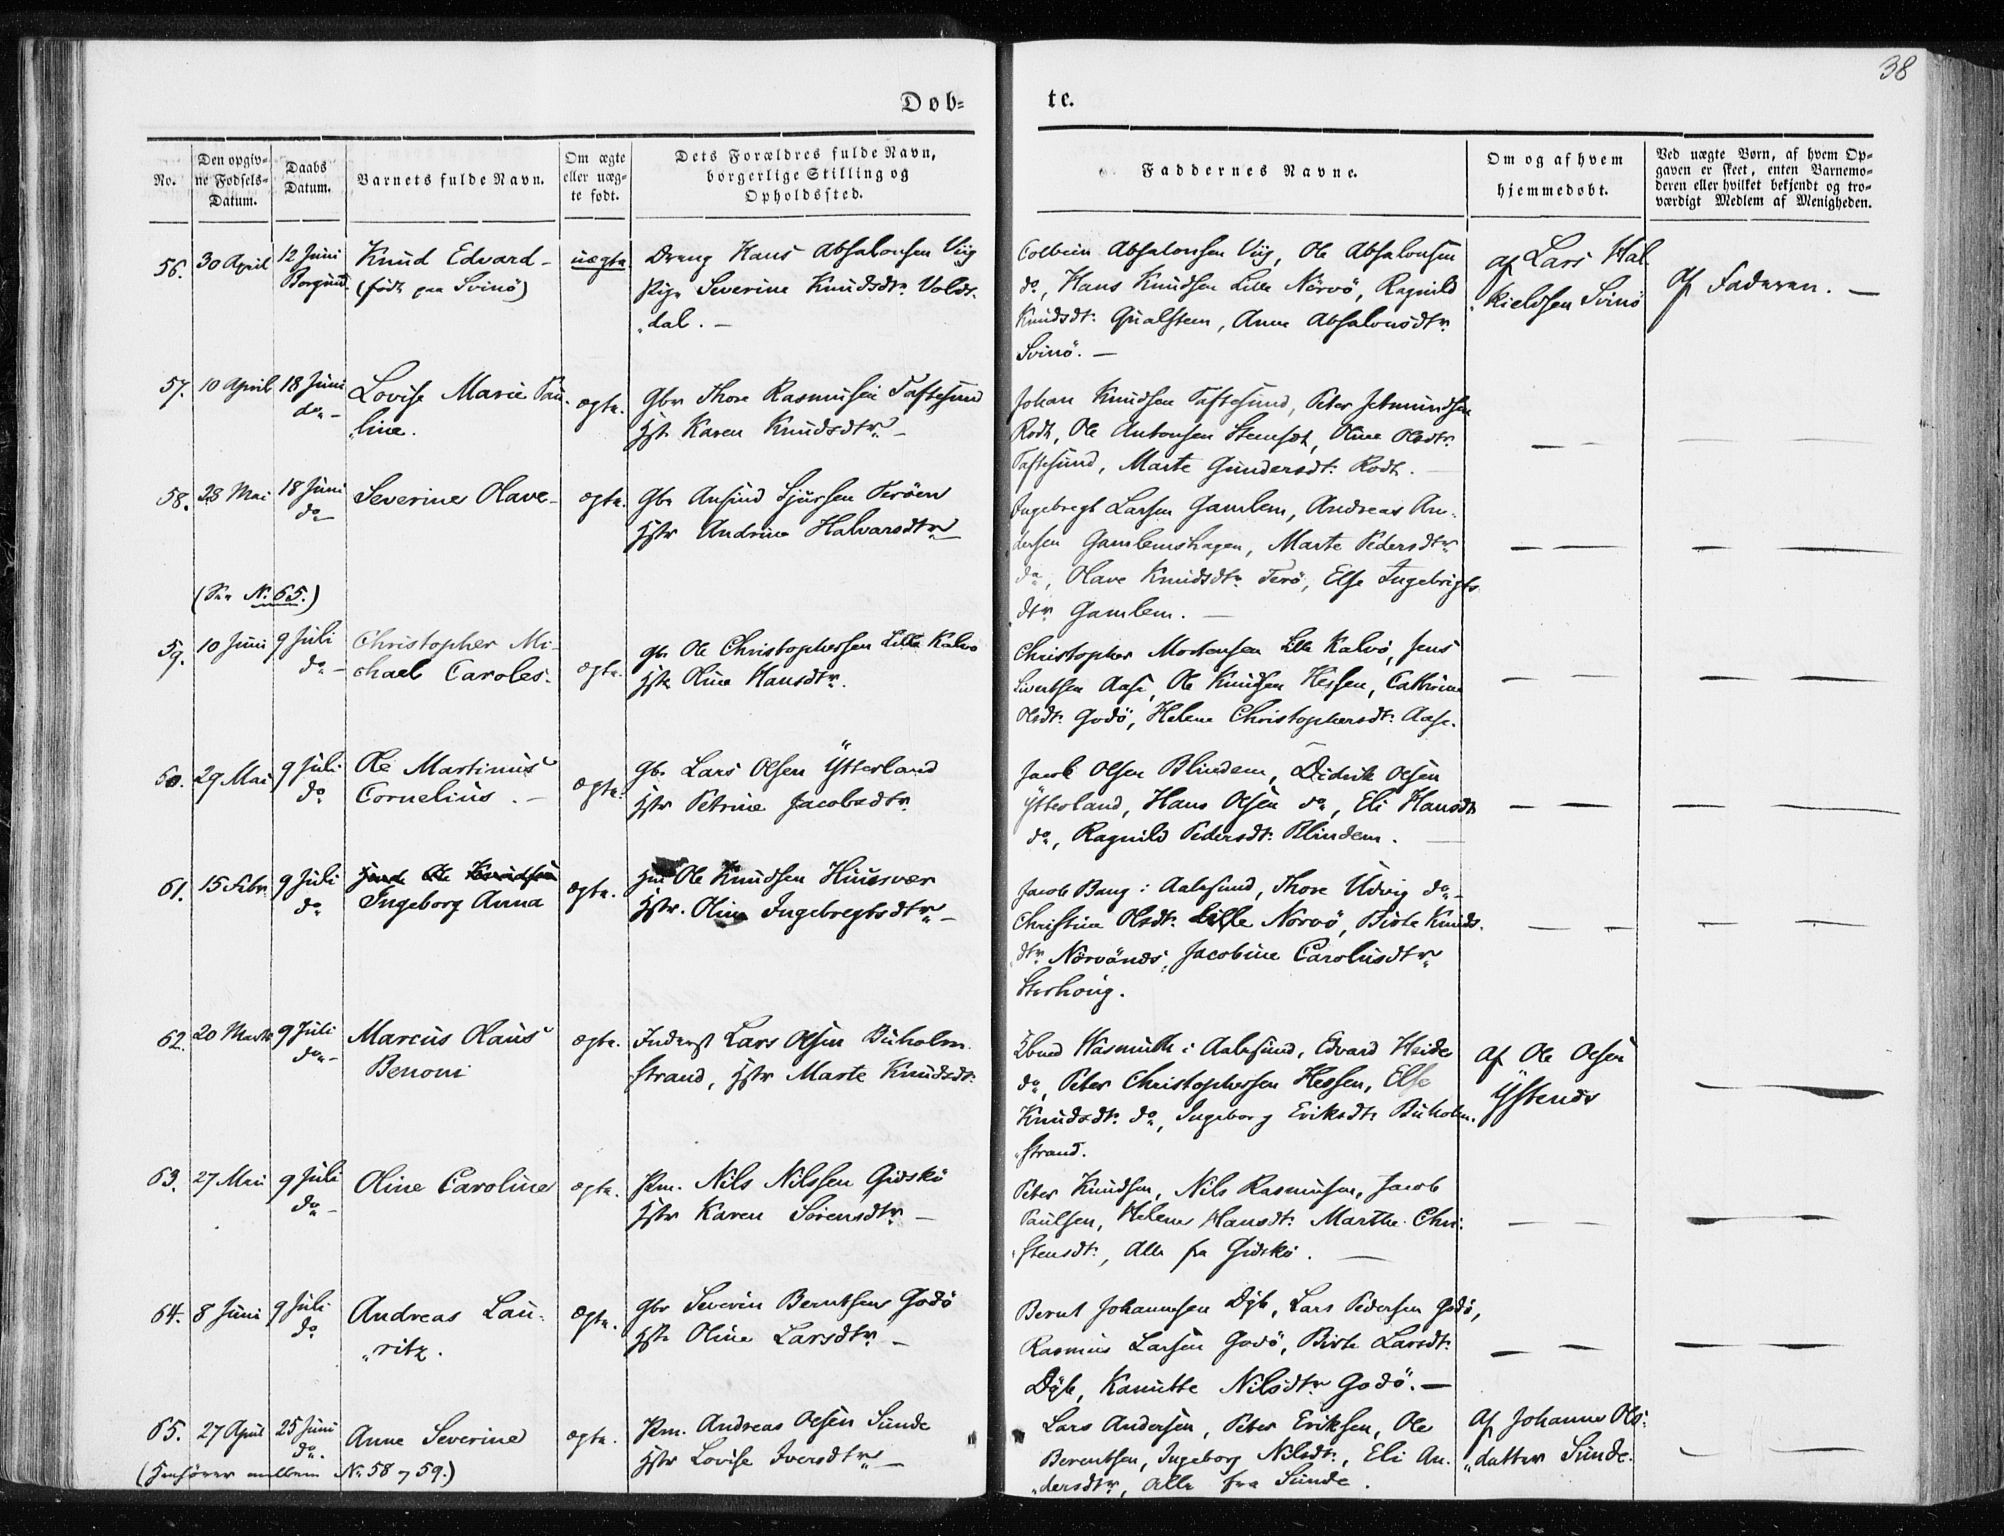 38
Døb=
te.
No.
Den opgiv=
ne Fødsels=
Datum.
Daabs
Datum.
Barnets fulde Navn.
Om ægte
eller uæg=
te født.
Dets Forældres fulde Navn,
borgerlige Stilling og
Opholdssted.
Faddernes Navne.
Om og af hvem
hjemmedøbt.
Ved uægte Børn, af hvem Op=
gaven er skeet, enten Barnemo=
deren eller hvilket bekjendt og tro=
værdigt Medlem af Menigheden.
56. 30 April 12 Juni
Borgund
Knud Edvard -
(født paa Svinö)
uægte
Dreng Hans Absalonsen Viig
Pige Severine Knudsdtr. Volds-
dal. -
Colbein Absalonsen Viig, Ole Absalonsen
do, Hans Knudsen Lille Nörvö, Ragnild
Knudsdt: Qualsteen, Anne Absalonsdtr
Svinö. -
af Lars Hal-
kieldsen Svinö
Af Faderen. -
57. 10 April 18 Juni
do -
Lovise Marie Pau-
line.
ægte.
Gbr Thore Rasmusen Taftesund
Hstr Karen Knudsdtr -
Johan Knudsen Taftesund, Peter Jetmundsen
Rodt, Ole Antonsen Stemset, Oline Olsdtr
Taftesund, Marte Gundersdt: Rodt. -
58. 28 Mai 18 Juni
do
Severine Olave -
ægte.
Gbr Ansind Sjursen Teröen
Hstr Andrine Halvarsdtr -
Ingebregt Larsen Gamlem, Andreas An-
dersen Gamlemshagen, Marte Pedersdtr
do, Olave Knudsdtr Terö, Else Ingebrigts
dtr Gamlem. -
(See No. 65.)
59. 10 Juni 9 Juli
do -
Christopher Mi-
chael Caroles.
ægte.
Gbr Ole Christophersen Lille Kalvö
Hstr Oline Hansdtr.
Christopher Mortensen Lille Kalvö, Jens
Sivertsen Aase, Ole Knudsen Hessen, Cathrine
Olsdt: Godö, Helene Christophersdt: Aase.
60. 29 Mai 9 Juli
do
Ole Martinus
Cornelius. -
ægte.
Gbr Lars Olsen Ytterland
Hstr Petrine Jacobsdtr
Jacob Olsen Blindem, Didrik Olsen
Ytterland, Hans Olsen do, Eli Hansdt
do, Ragnild Pedersdt: Blindem. -
61. 15 Febr 9 Juli
do
Ingeborg Anna
ægte.
Ole Knudsen Huusvær
Hstr. Oline Ingebregtsdtr -
Jacob Bang i Aalesund, Thore Udvig do -
Christine Olsdt: Lille Norvö, Birte Knuds-
dtr Nörvönes, Jacobine Carolusdtr
62. 20 Marts 9 Juli
do -
Marcus Olaus
Benoni
ægte.
Inderst Lars Olsen Buholm-
strand, Hstr Marte Knudsdt:
Wasmuth i Aalesund, Edvard Heide
do, Peter Christophersen Hessen, Else
Knudsdt: do, Ingeborg Eriksdtr Buholm-
strand.
af Ole Olsen
63. 27 Mai 9 Juli
do -
Oline Caroline
ægte.
Pm. Nils Nilssen Gidskö
Hstr Karen Sörensdtr -
Peter Knudsen, Nils Rasmusen, Jacob
Paulsen, Helene Hansdt: Marthe Chri-
stensdt:, Alle fra Gidskö. -
64. 8 Juni 9 Juli
do
Andreas Lau-
ritz.
ægte.
Gbr Severin Berntsen Godö
Hstr Oline Larsdtr -
Bernt Johannesen Dyb, Lars Pedersen Godö,
Rasmus Larsen Godö, Birte Larsdt:
Dyb, Kanutte Nilsdtr Godö. -
65. 27 April 25 Juni
do.
Anne Severine
ægte.
Pm. Andreas Olsen Sunde
Hstr Lovise Iversdtr -
Lars Andersen, Peter Eriksen, Ole
Berentsen, Ingeborg Nilsdt:, Eli An-
dersdtr, Alle fra Sunde.
Af Johanne Ols-
datter Sunde.
(Henhörer mellem No 58 og 59.)